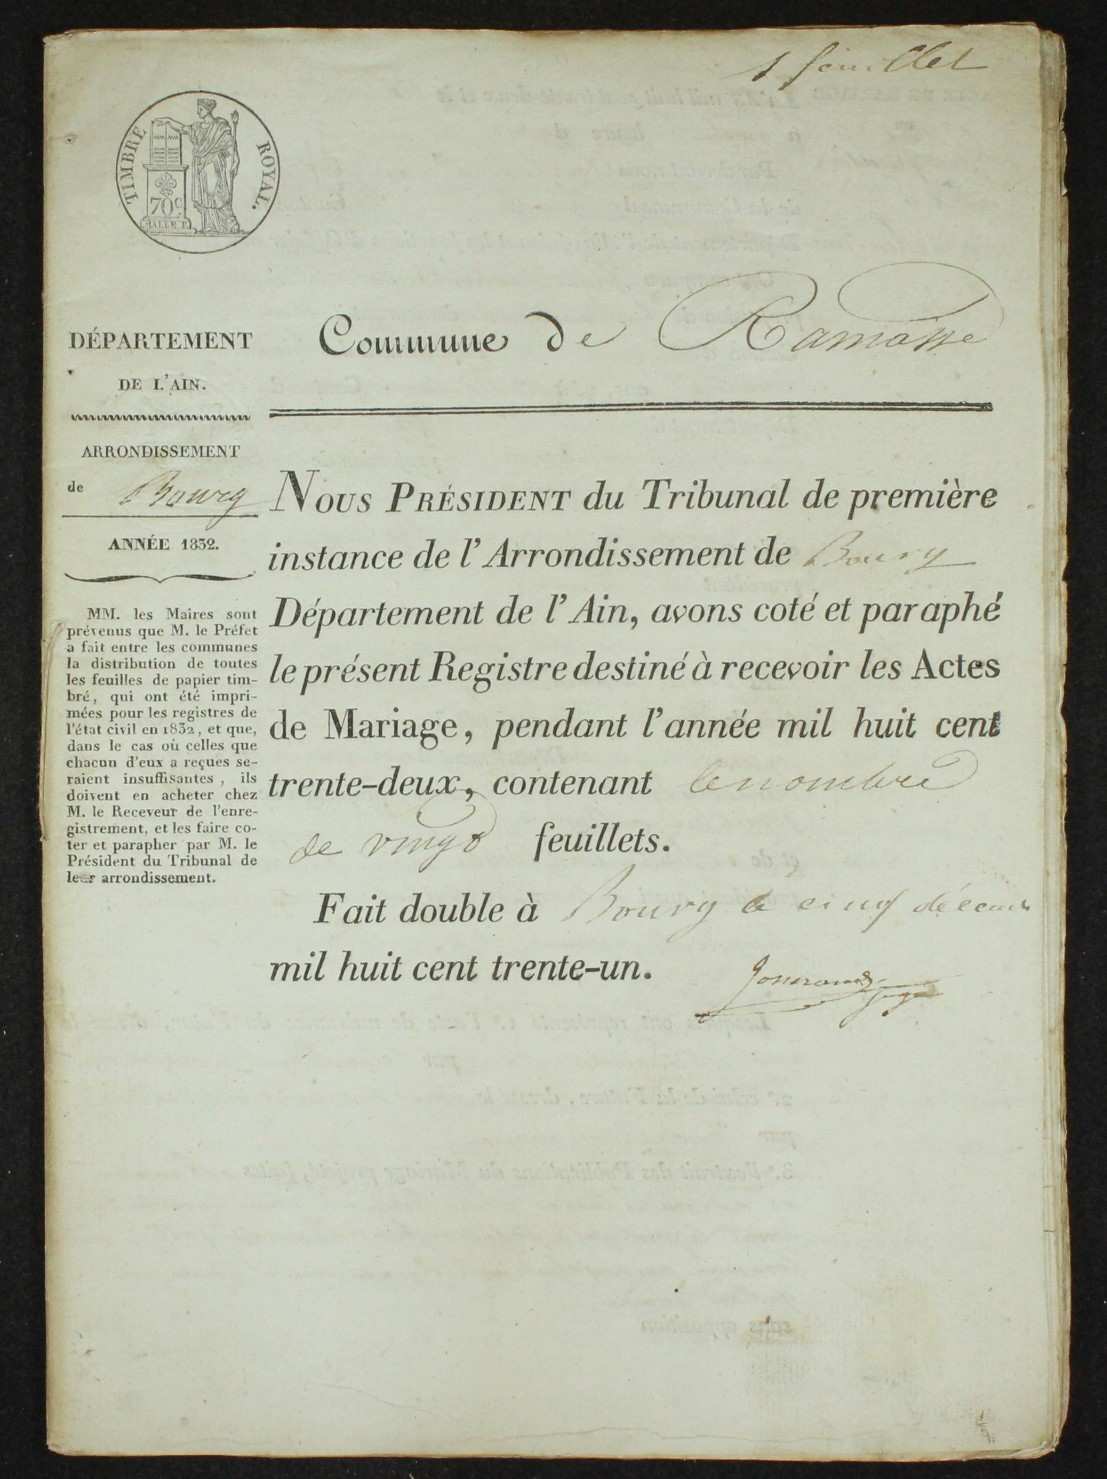 1 feuillet
TIMBRE ROYAL.
70 C
DÉPARTEMENT
DE L'AIN.
ARRONDISSEMENT
de Bourg
ANNÉE 1832.
MM. les Maires sont
prévenus que M. le Préfet
a fait entre les communes
la distribution de toutes
les feuilles de papier tim-
bré, qui ont été impri-
mées pour les registres de
l'état civil en 1832, et que,
dans le cas où celles que
chacun d'eux a reçues se-
raient insuffisantes, ils
doivent en acheter chez
M. le Receveur de l'enre-
gistrement, et les faire co-
ter et parapher par M. le
Président du Tribunal de
leur arrondissement.
Commune de Ramasse
NOUS PRÉSIDENT du Tribunal de première
instance de l'Arrondissement de Bourg
Département de l'Ain, avons coté et paraphé
le présent Registre destiné à recevoir les Actes
de Mariage, pendant l'année mil huit cent
trente-deux, contenant le nombre
de vingt feuillets.
Fait double à Bourg le cinq décemb
mil huit cent trente-un.